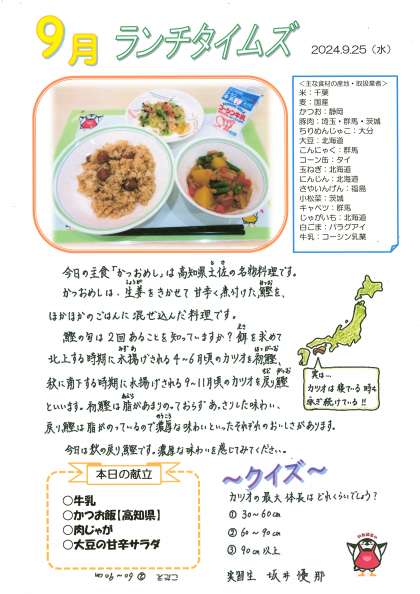 9月 ランチタイムズ
2024.9.25（水）
＜主な食材の産地・取扱業者＞
米：千葉
麦：国産
かつお：静岡
豚肉：埼玉・群馬・茨城
ちりめんじゃこ：大分
大豆：北海道
こんにゃく：群馬
コーン缶：タイ
玉ねぎ：北海道
にんじん：北海道
さやいんげん：福島
小松菜：茨城
キャベツ：群馬
じゃがいも：北海道
白ごま：パラグアイ
牛乳：コーシン乳業
今日の主食「かつおめし」は高知県土佐の名物料理です。
かつおめしは、生姜をきかせて甘辛く煮付けた鰹を、
ほかほかのごはんに混ぜ込んだ料理です。
鰹の旬は2回あることを知っていますか？餌を求めて
北上する時期に水揚げされる4～6月頃のカツオを初鰹、
秋に南下する時期に水揚げされる9～11月頃のカツオを戻り鰹
といいます。初鰹は脂があまりのっておらずあっさりした味わい、
戻り鰹は脂がのっているので濃厚な味わいといったそれぞれのおいしさがあります。
今日は秋の戻り鰹です。濃厚な味わいを感じてみてください。
実は…
カツオは寝ている時も
泳ぎ続けている!!
本日の献立
○牛乳
○かつお飯【高知県】
○肉じゃが
○大豆の甘辛サラダ
～クイズ～
カツオの最大体長はどれくらいでしょう？
① 30～60cm
② 60～90cm
③ 90cm以上
実習生 坂井優那
こたえ ② 60～90cm